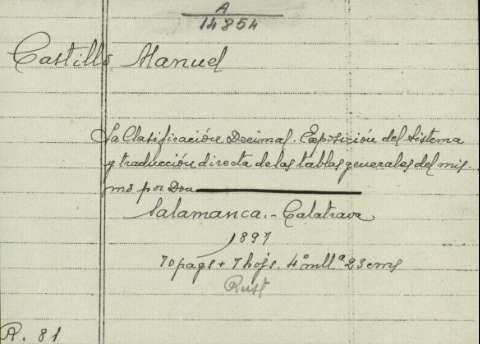 A
14854
Castillo Manuel
La Clasificación Decimal. Exposición del Sistema
y traducción directa de las tablas generales del mis-
mo por Don
Salamanca.- Calatrava
1897
70 pags + 7 hojs. 4º mllª 23 cms
Rust
R. 81